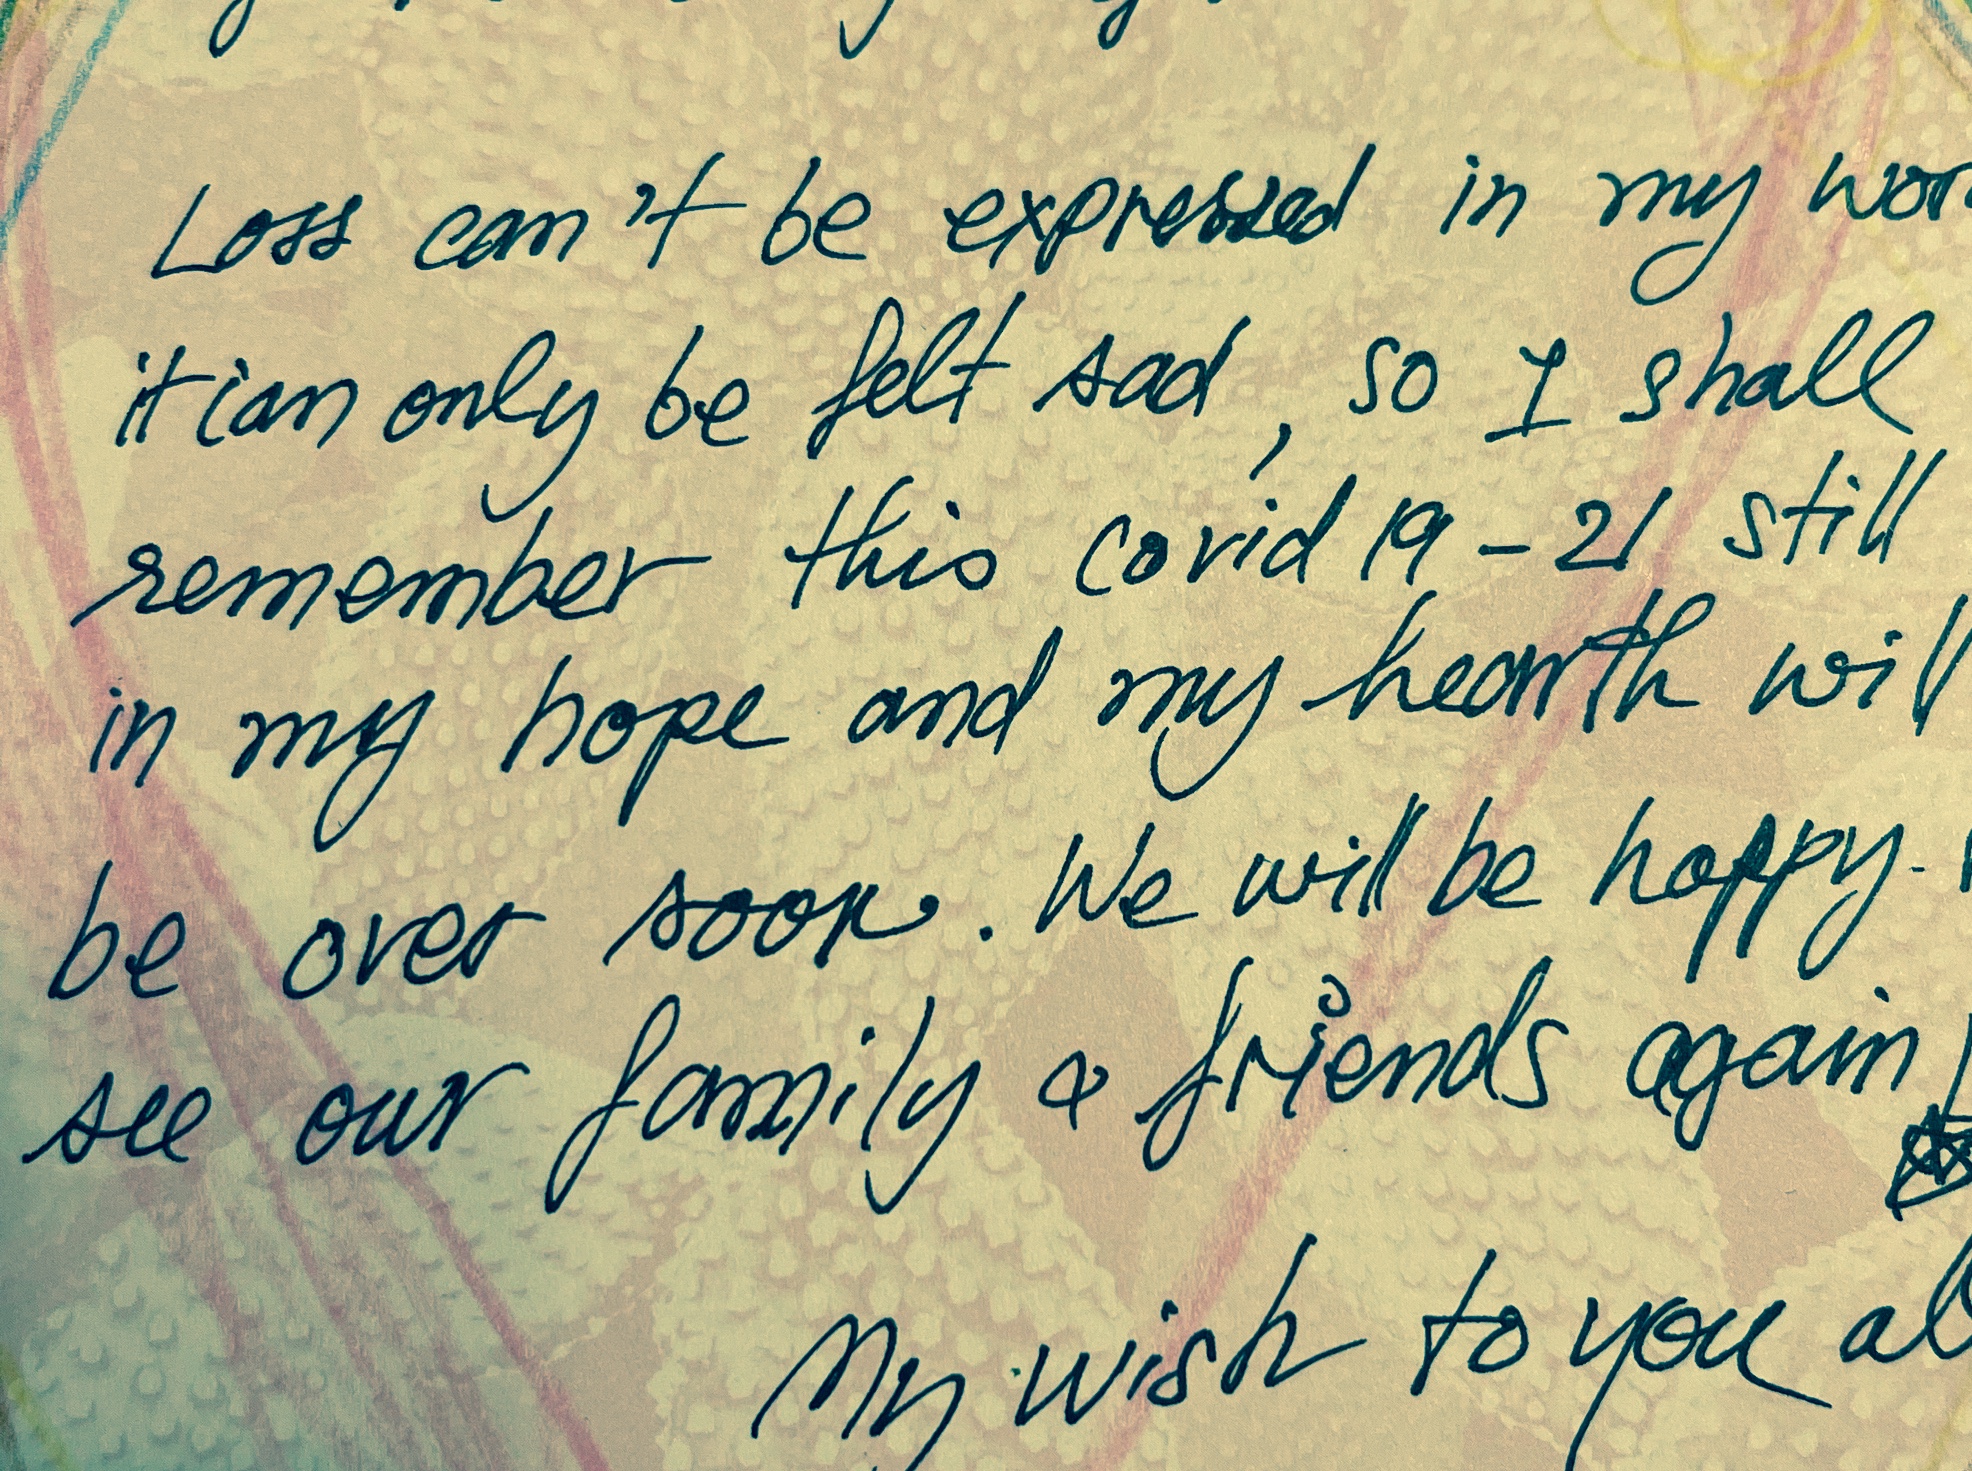 Loss can't be expressed in my wor
it can only be felt sad, so I shall
remember this covid 19-21 still
in my hope and my hearth will
be over soon. We will be happy.
see our family & friends again!
My wish to you al